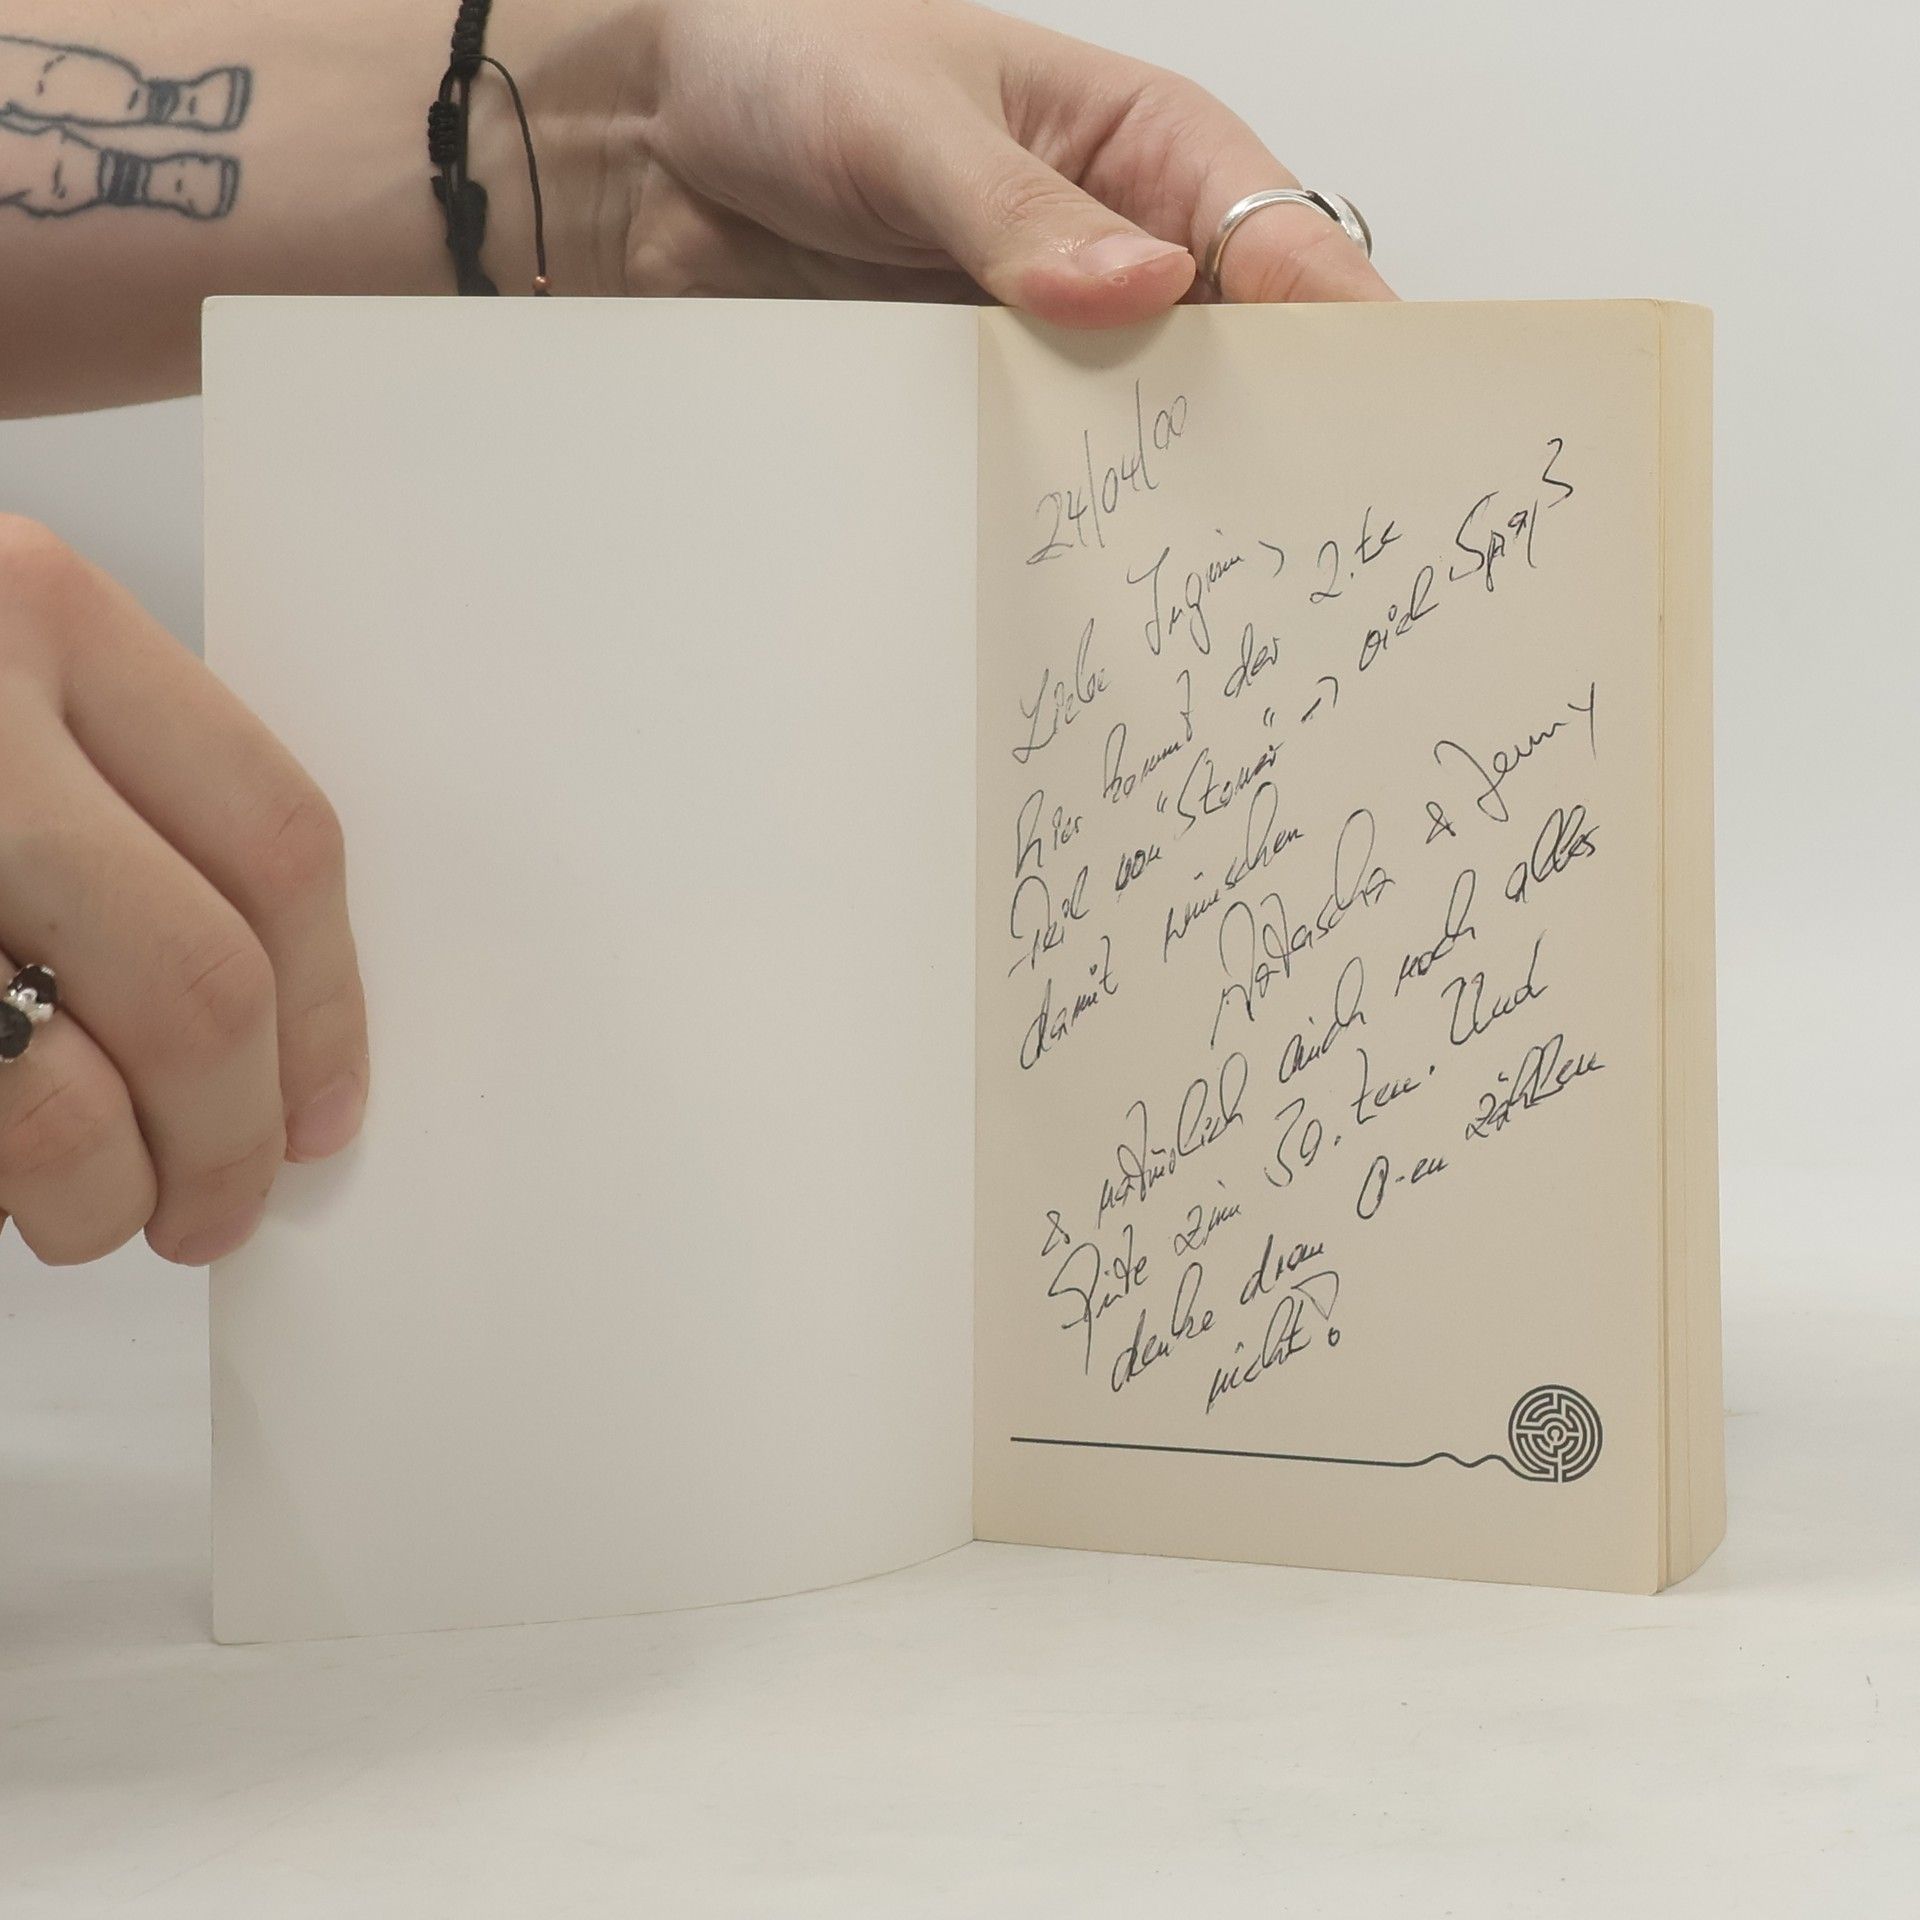 24/04/00
Liebe Ingrun,
hier kommt der 2.te
Teil von "Stonor" → viel Spaß
damit wünschen
Natascha & Jenny
& natürlich auch noch alles
Gute zum 30.ten. Und
denke dran 0-en zählen
nicht!